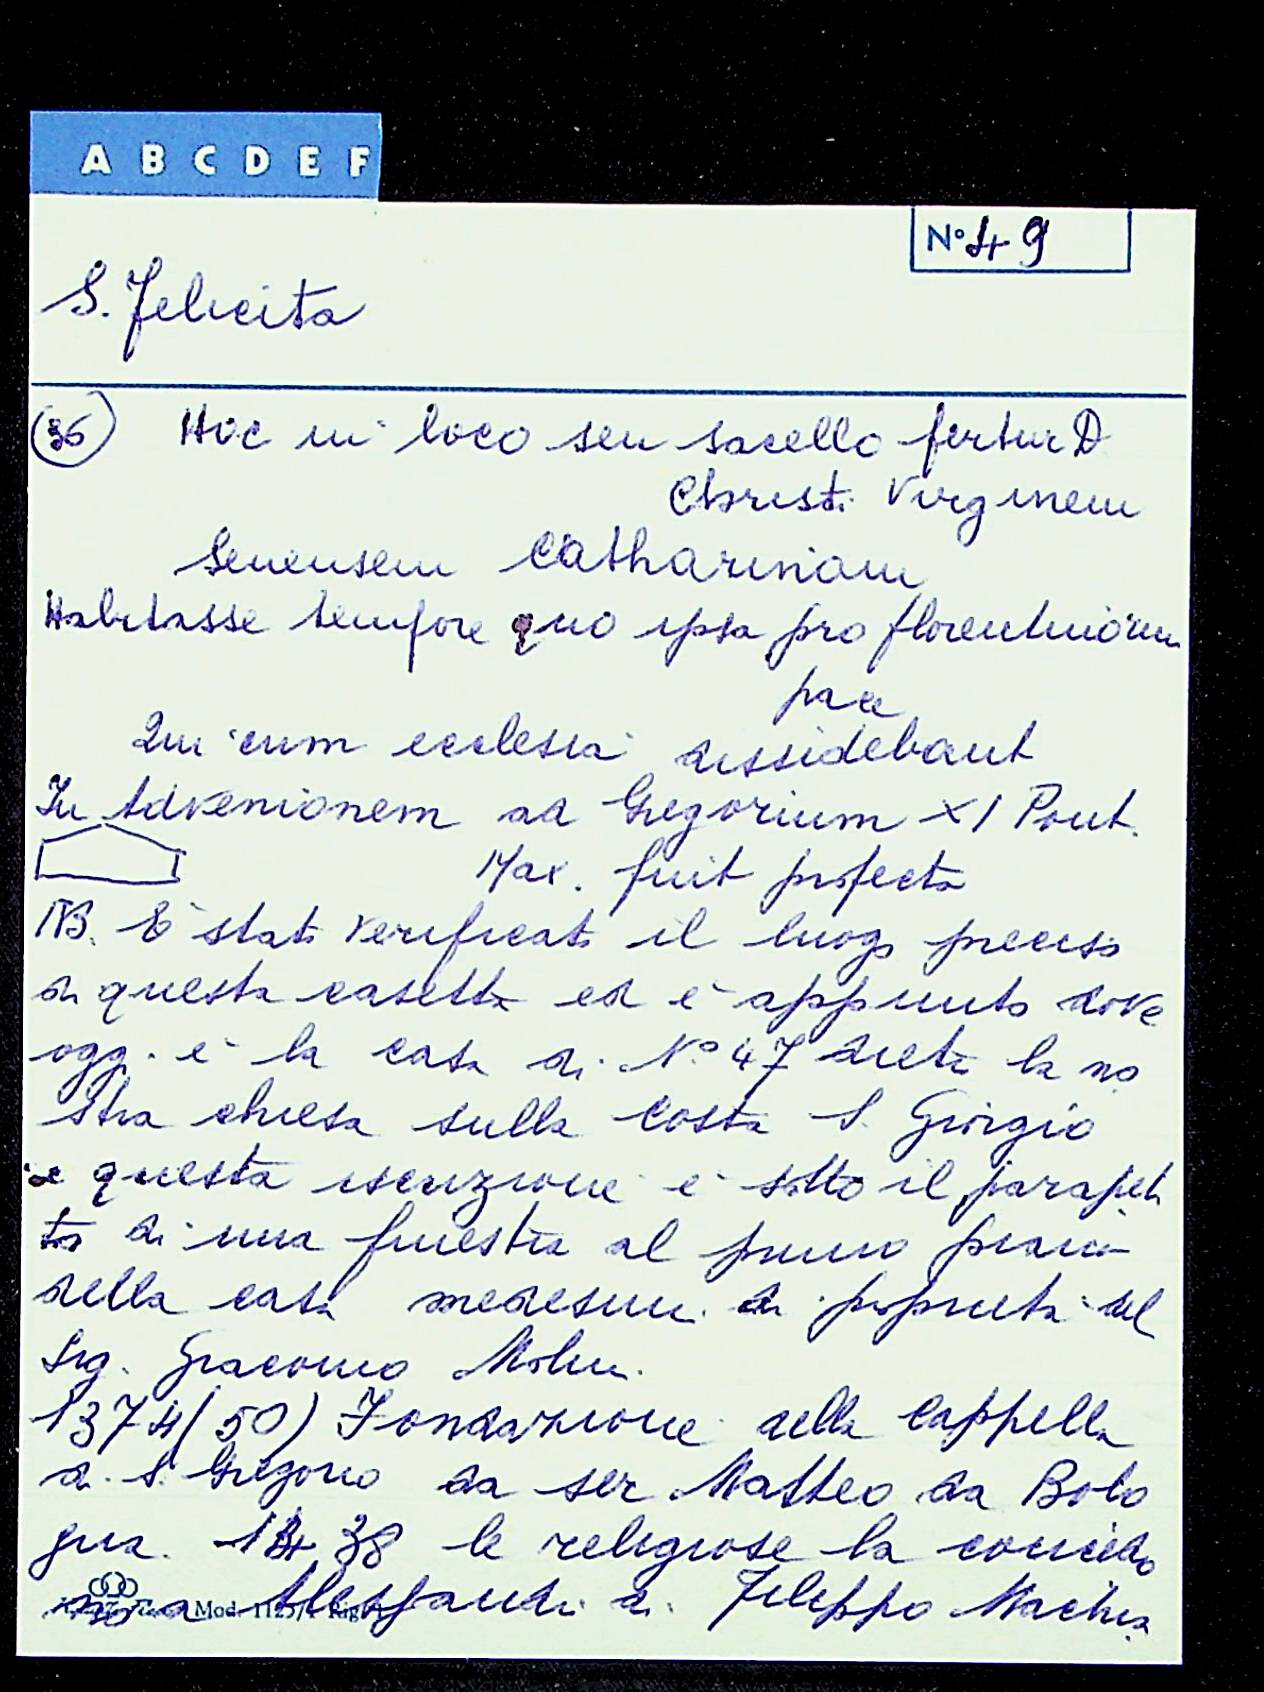 A B C D E F
N° 49
S. Felicita
(36) Hoc in loco seu sacello fertur D
Christi Virginem
Senensem Catharinam
Habitasse tempore quo ipsa pro florentinorum
pace
Qui cum ecclesia dissidebant
In Advenionem ad Gregorium XI Pont.
Max. fuit profecta
NB. È stato verificato il luogo preciso
di questa casetta ed è appunto dove
oggi è la casa di N° 47 dietro la no
stra chiesa sulla costa S. Giorgio
e questa iscrizione è sotto il parapet
to di una finestra al primo piano
della casa medesima di proprietà del
Sig. Giacomo
1374 (50) Fondazione della Cappella
di S. Gregorio da ser Matteo da Bolo
gna. 1438 le religiose la concedo
no a Alessandro di Filippo Machia
Mod. 1125/